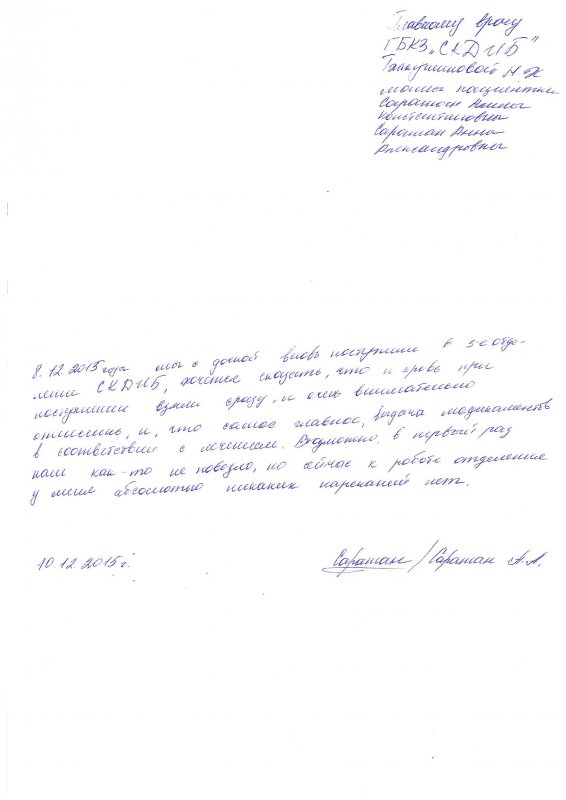 Главному врачу
ГБКЗ „СКДИБ"
Тхакушиновой Н Х
мамы пациентки
Саратан
Константиновны
Саратан Анны
Александровны
8.12.2015 года мы с дочкой вновь поступили в 3-е отде-
ление СКДИБ, хочется сказать, что и кровь при
поступлении взяли сразу, и очень внимательно
отнеслись, и, что самое главное, выдача медикаментов
в соответствии с лечением. Возможно, в первый раз
нам как-то не повезло, но сейчас к работе отделения
у меня абсолютно никаких нареканий нет.
10.12.2015 г. Саратан / Саратан А.А.